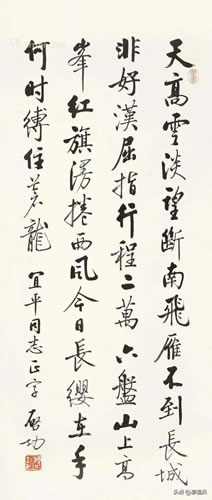 天高雲淡望斷南飛雁不到長城
非好漢屈指行程二萬六盤山上高
峯紅旗漫捲西風今日長纓在手
何时縛住蒼龍 宜平同志正字 啟功